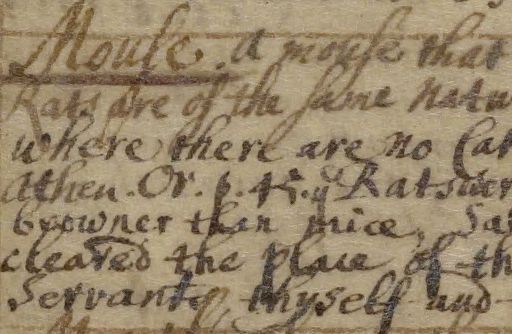 Mouse. a mouse that
Rats are of the same natu
where there are no Cat
Athen. Or. p. 45. yt Rats wer
browner than mice, Sa
cleared the place of th
Servants, thyself and